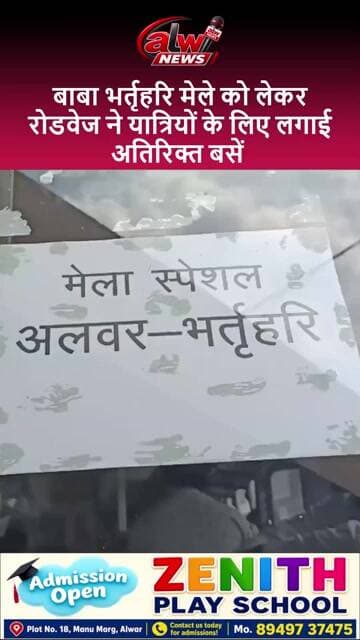 aLw
NEWS
बाबा भर्तृहरि मेले को लेकर
रोडवेज ने यात्रियों के लिए लगाई
अतिरिक्त बसें
मेला स्पेशल
अलवर–भर्तृहरि
Admission
Open
ZENITH
PLAY SCHOOL
Plot No. 18, Manu Marg, Alwar
Contact us today
for admissions!
Mo. 89497 37475